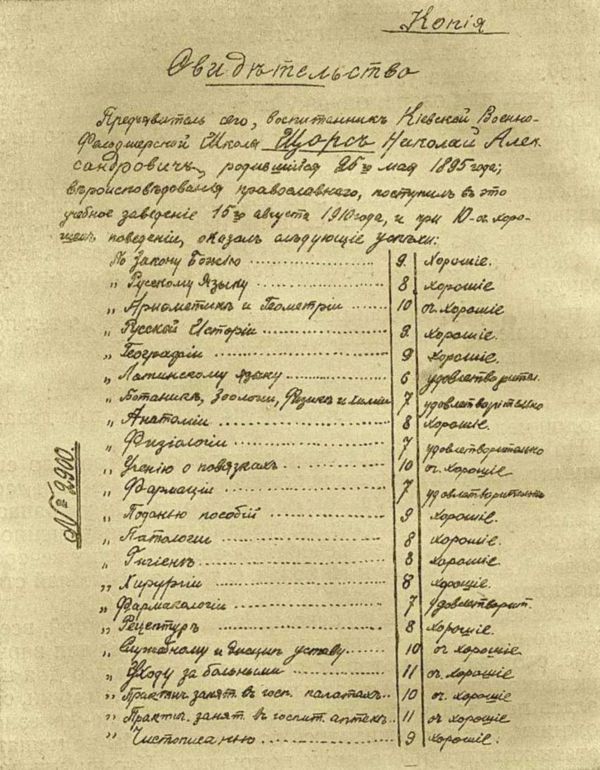 Копія
Свидѣтельство
Предъявитель сего, воспитанникъ Кіевской Военно-
Фельдшерской Школы Щорсъ Николай Алек-
сандровичъ, родившійся 25го мая 1895 года,
вѣроисповѣданія православнаго, поступилъ въ это
учебное заведеніе 15го августа 1910 года, и при 10-оч. хоро-
шемъ поведеніи, оказалъ слѣдующіе успѣхи:
По Закону Божію 9. Хорошіе.
„ Русскому Языку 8 Хорошіе.
„ Ариѳметикѣ и Геометріи 10 оч. хорошіе
„ Русской Исторіи 9. Хорошіе.
„ Географіи 9 Хорошіе.
„ Латинскому языку 6 удовлетворител.
„ Ботаникѣ, Зоологіи, Физикѣ и Химіи 7 удовлетворительно
„ Анатоміи 8 Хорошіе.
„ Физіологіи 7 удовлетворительно
„ Ученію о повязкахъ 10 оч. хорошіе
„ Фармаціи 7 удовлетворительн
„ Поданью пособій 9 Хорошіе.
„ Патологіи 8 Хорошіе.
„ Гигіенѣ 8 Хорошіе.
„ Хирургіи 8 Хорошіе.
„ Фармакологіи 7 Удовлетворит.
„ Рецептурѣ 8 Хорошіе.
„ Служебному и дисцип. уставу 10 оч. хорошіе
„ Уходу за больными 11 оч. хорошіе.
„ Практич. занят. въ госп. палатахъ 10 оч. хорошіе
„ Практич. занят. въ госпит. аптекѣ 11 оч хорошіе
„ Чистописанью 9 Хорошіе.
№ 2900.